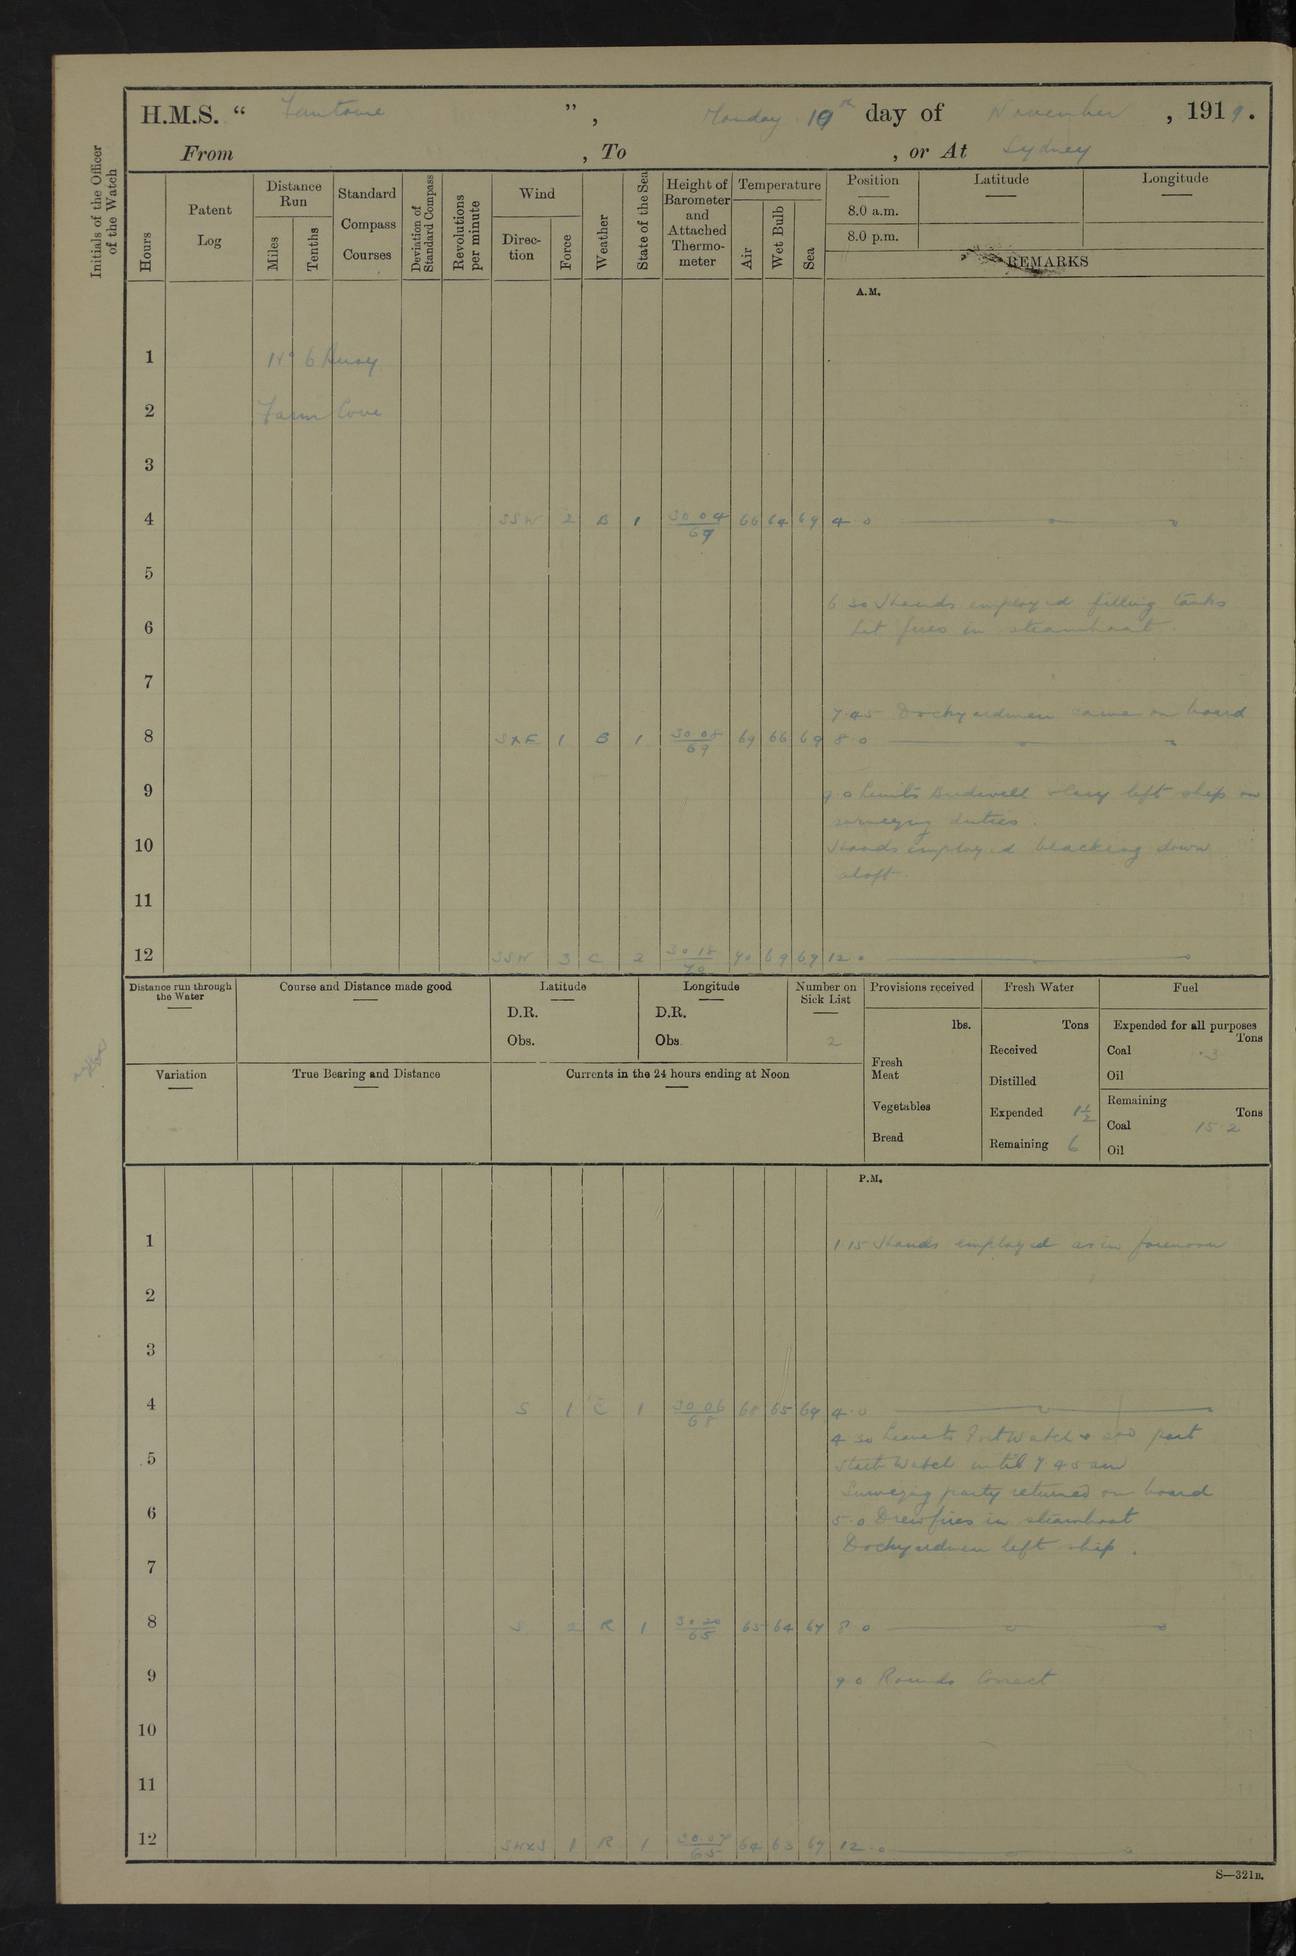 H.M.S. " Fantome ", Monday 10th day of November, 1919.
From , To , or At Sydney
Initials of the Officer of the Watch
Hours
Patent Log
Distance Run
Miles
Tenths
Standard Compass Courses
Deviation of Standard Compass
Revolutions per minute
Wind
Direction
Force
Weather
State of the Sea
Height of Barometer and Attached Thermometer
Temperature
Air
Wet Bulb
Sea
Position
8.0 a.m.
8.0 p.m.
Latitude
Longitude
REMARKS
A.M.
1 No 6 Buoy
2 Farm Cove
3
4 SSW 2 B 1 30 04/69 66 64 69 4 0
5
6 30 Hands employed filling tanks
6 Lit fires in steamboat.
7
7.45 Dockyardmen came on board
8 SxE 1 B 1 30 08/69 69 66 69 8 0
9 9.0 Lieuts Bridewell left ship on
surveying duties.
10 Hands employed blacking down
aloft.
11
12 SSW 3 C 2 30 18/70 70 69 69 12 0
Distance run through the Water
Course and Distance made good
Latitude
D.R.
Obs.
Longitude
D.R.
Obs.
Number on Sick List
2
Provisions received
lbs.
Fresh Meat
Vegetables
Bread
Fresh Water
Tons
Received
Distilled
Expended 1½
Remaining 6
Fuel
Expended for all purposes
Tons
Coal .3
Oil
Remaining
Tons
Coal 15.2
Oil
Variation
True Bearing and Distance
Currents in the 24 hours ending at Noon
P.M.
1 1.15 Hands employed as in forenoon
2
3
4 S 1 C 1 30 06/68 68 65 69 4.0
4.30 Leave to Port Watch & 2nd part
5 Starbd Watch until 7.45 am
Surveying party returned on board
6 5.0 Drew fires in steamboat
Dockyardmen left ship.
7
8 S 2 R 1 30 20/65 65 64 67 8 0
9 9 0 Rounds Correct
10
11
12 SWxS 1 R 1 30.07/65 64 63 67 12.0
S—321B.